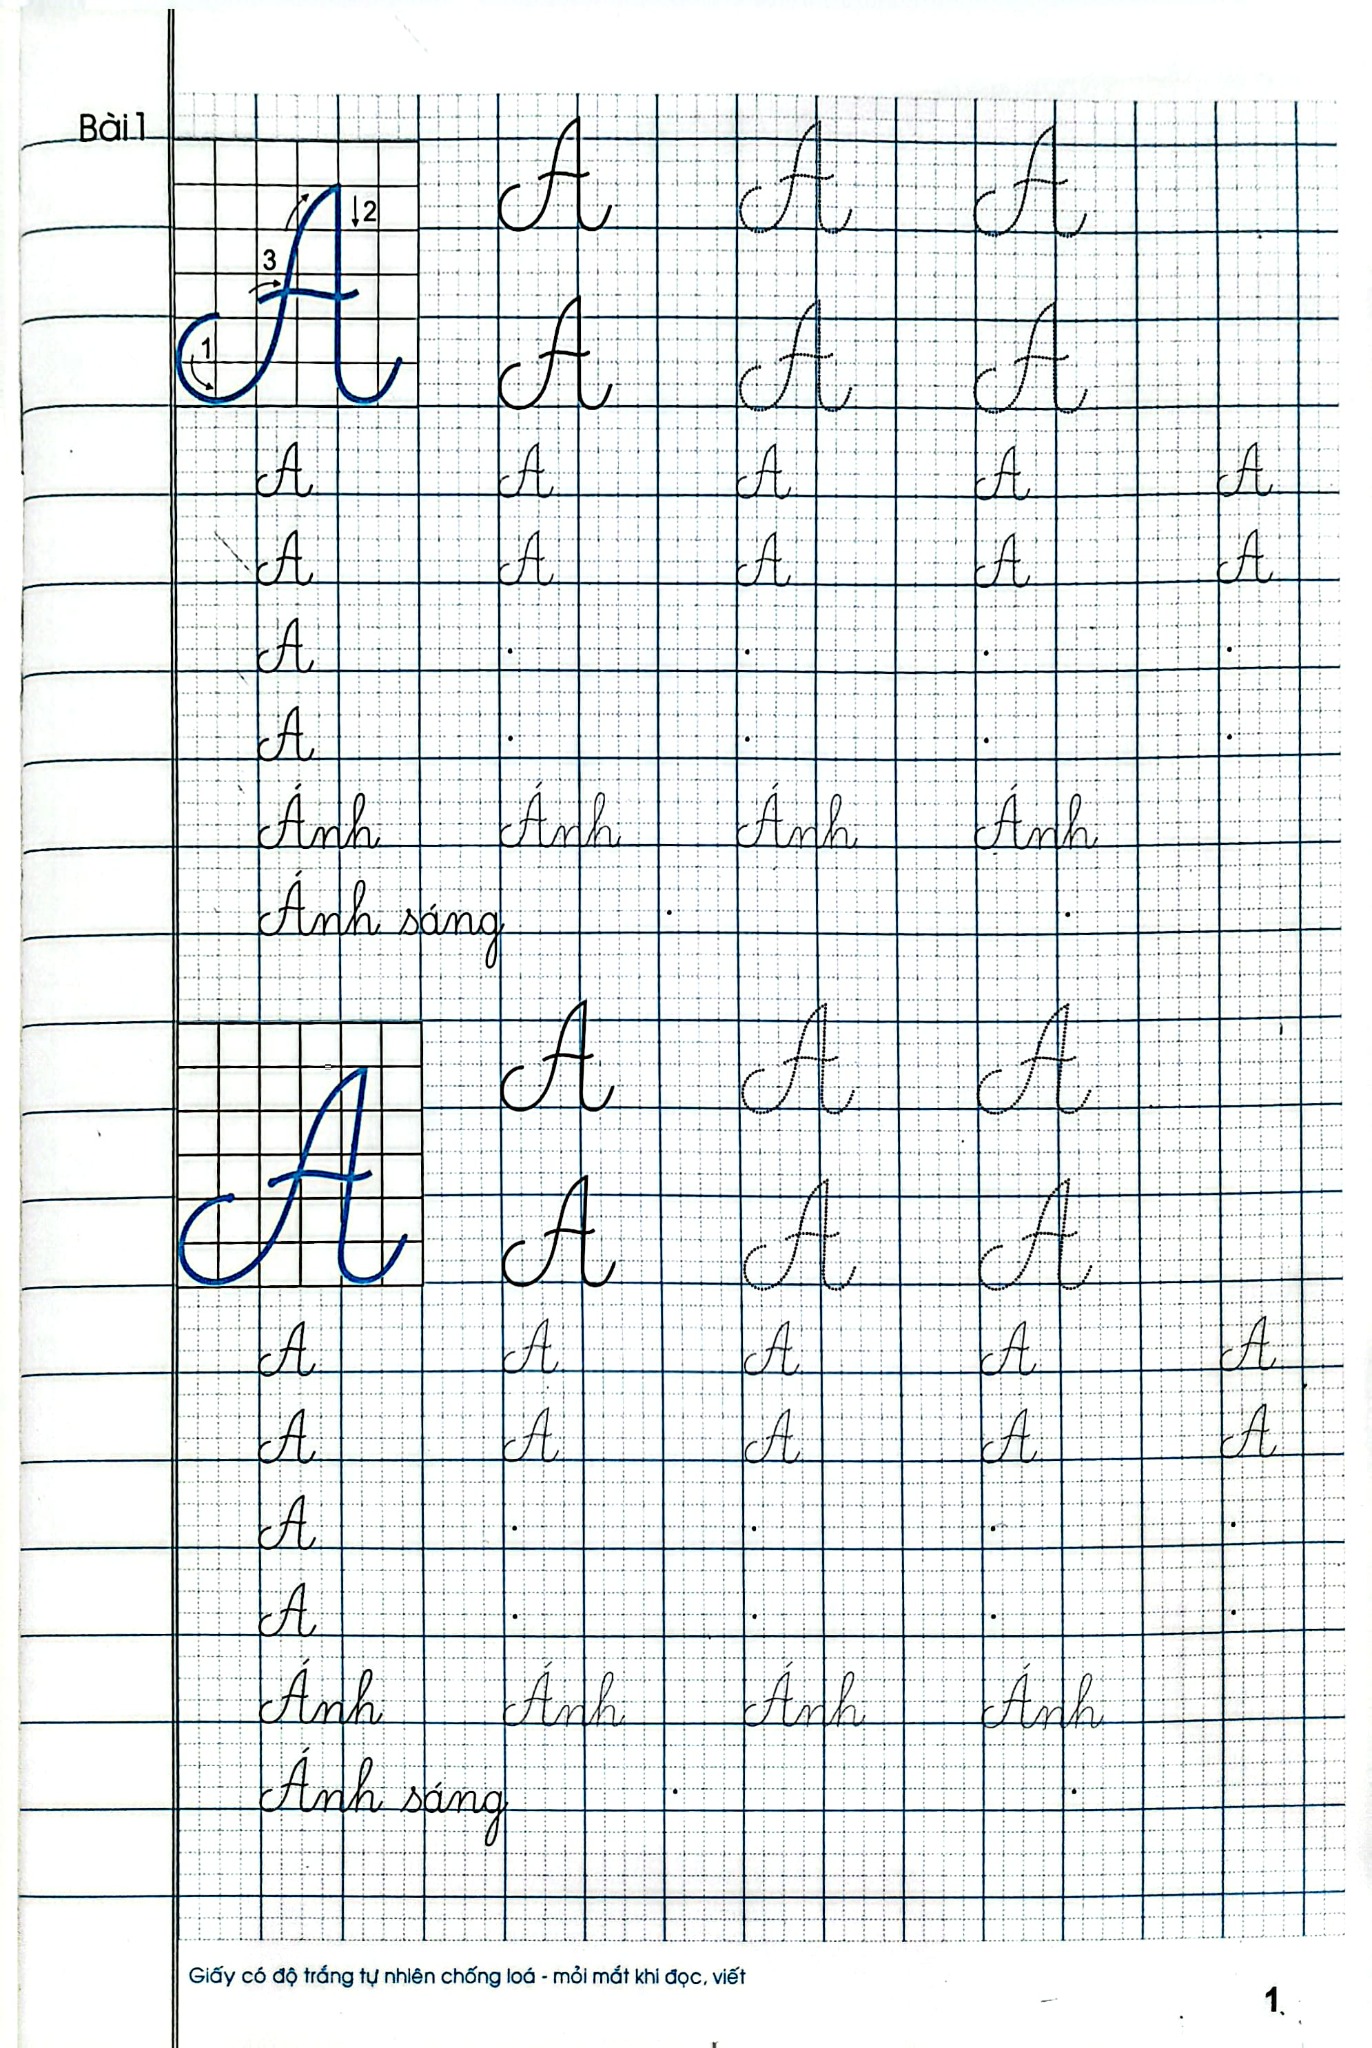 Bài 1
A A A
2
3
1
A A A
A A A A A
A A A A A
A
A
Ánh Ánh Ánh Ánh
Ánh sáng
A A A
A A A
A
A A A A A
A A A A A
A
A
Ánh Ánh Ánh Ánh
Ánh sáng
Giấy có độ trắng tự nhiên chống loá - mỏi mắt khi đọc, viết
1